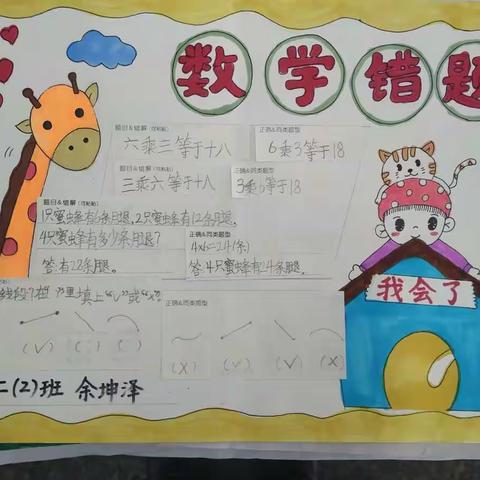 数学错题
题目&错解（可粘贴）
六乘三等于十八
正确&同类题型
6乘3等于18
题目&错解（可粘贴）
三乘六等于十八
正确&同类题型
3乘6等于18
题目&错解（可粘贴）
1只蜜蜂有6条月退，2只蜜蜂有12条月退，
4只蜜蜂有多少条月退？
答：有28条月退。
正确&同类题型
4×6=24（条）
答：4只蜜蜂有24条腿。
线段？在（）里填上“√”或“×”
(√) ( ) ( )
正确&同类题型
(×) (√) (√) (×)
我会了
二(2)班 余坤泽